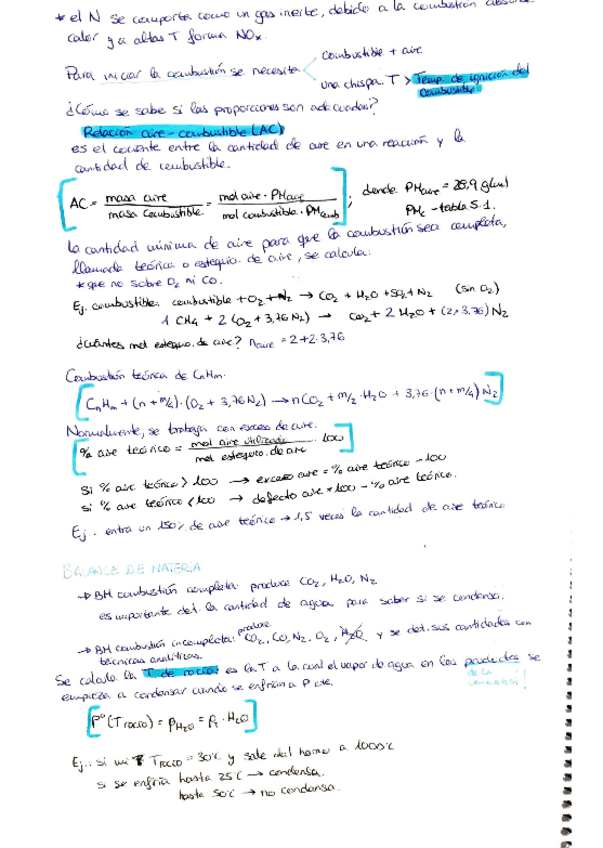 * el N se comporta como un gas inerte, debido a la combustión
calor y a altas T forma NOx.
Para iniciar la combustión se necesita
combustible + aire
una chispa. T > Temp. de ignición del combustible
¿Cómo se sabe si las proporciones son adecuadas?
Relación aire-combustible (AC)
es el cociente entre la cantidad de aire en una reacción y la
cantidad de combustible.
AC = masa aire / masa combustible = mol aire · PMaire / mol combustible · PMcomb ; donde PMaire = 28,9 g/mol
PMc - tabla S.1.
la cantidad mínima de aire para que la combustión sea completa,
llamada teórica o estequio. de aire, se calcula:
* que no sobre O2 ni CO.
Ej. combustible: combustible + O2 + N2 → CO2 + H2O + SO2 + N2 (sin O2)
1 CH4 + 2 (O2 + 3,76 N2) → CO2 + 2 H2O + (2 · 3.76) N2
¿Cuántos mol estequio. de aire? naire = 2 + 2 · 3,76
Combustión teórica de CnHm.
CnHm + (n + m/4) · (O2 + 3,76 N2) → n CO2 + m/2 · H2O + 3,76 · (n + m/4) N2
Normalmente, se trabaja con exceso de aire.
% aire teórico = mol aire utilizado / mol estequio. de aire · 100
Si % aire teórico > 100 → exceso aire = % aire teórico - 100
si % aire teórico < 100 → defecto aire = 100 - % aire teórico.
Ej. entra un 150% de aire teórico → 1,5 veces la cantidad de aire teórico.
BALANCE DE MATERIA
→ BM combustión completa: produce CO2, H2O, N2
es importante det. la cantidad de agua, para saber si se condensa.
→ BM combustión incompleta: produce CO2, CO, N2, O2, H2O y se det. sus cantidades con
técnicas analíticas.
Se calcula la T. de rocío: es la T a la cual el vapor de agua en los productos de la combustión! se
empieza a condensar cuando se enfrían a P cte.
P°(Trocío) = PH2O = PT · H2O
Ej.: si mi Trocío = 30°C y sale del horno a 1000°C
si se enfría hasta 25°C → condensa.
hasta 50°C → no condensa.